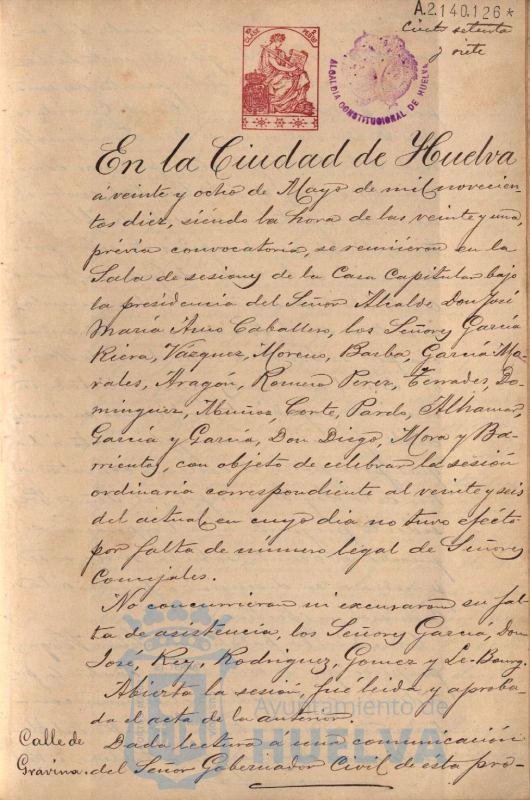 A.2.140.126*
Ciento setenta
y siete
CLASE
ALCALDIA CONSTITUCIONAL DE HUELVA
En la Ciudad de Huelva
á veinte y ocho de Mayo de mil novecien-
tos diez, siendo la hora de las veinte y una,
prévia convocatoria, se reunieron en la
Sala de sesiones de la Casa Capitular bajo
la presidencia del Señor Alcalde Don José
María Caballero, los Señores García
Riera, Vazquez, Moreno, Barba, García Mo-
rales, Aragón, Romero Perez, Terrades, Do-
minguez, Muñoz, Corte, Pardo, Alhamar,
García y García, Don Diego, Mora y Ba-
rrientos, con objeto de celebrar la sesión
ordinaria correspondiente al veinte y seis
del actual, en cuyo dia no tuvo efécto
por falta de número legal de Señores
Concejales.
No concurrieron ni excusaron su fal-
ta de asistencia, los Señores García, Don
José, Rey, Rodriguez, Gomez y Le-Bourg.
Abierta la sesión, fué leida y aproba-
da el acta de la anterior.
Calle de
Gravina.
Dada lectura á una comunicación
del Señor Gobernador Civil de esta pro-
Ayuntamiento de
HUELVA